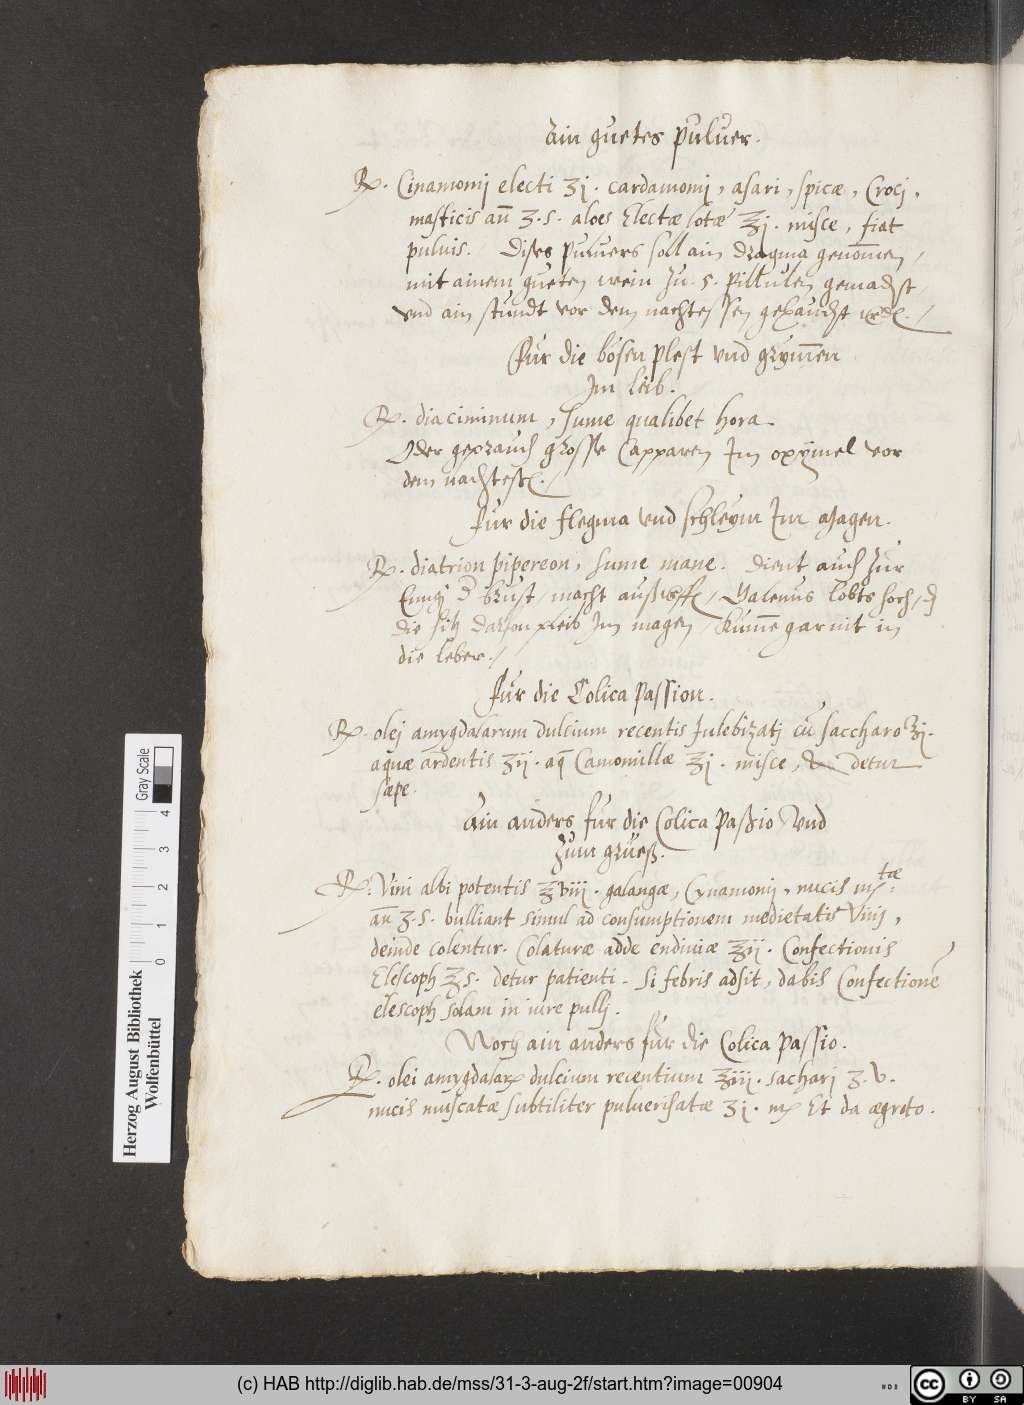 Ain guetes puluer.
℞. Cinamomij electi ʒj. cardamomij, asari, spicæ, Crocj,
masticis an̄ ʒ.s. aloes Electæ lotæ ℥j. misce, fiat
puluis. Dises puluers soll ain dragma genom̄en,
mit ainem gueten wein zu .5. pillulen gemacht,
vnd ain stundt vor dem nachtessen gebraucht
Fur die bösen plest vnd grym̄en
Im leib.
℞. diaciminum, sume qualibet hora.
Oder geprauch grosse Capparen Im oxÿmel vor
dem nachtess.
Fur die flegma vnd schleym Im Magen.
℞. diatrion pipereon, sume mane. dient auch zur
der brust, macht Galenus lobts hoch, d
die hitz daruon pleib Im magen, kum̄e gar nit in
die leber.
Fur die Colica passion.
℞. olej amygdalarum dulcium recentis Iulebizatj cū saccharo ℥j.
aquæ ardentis ʒij. aq̄ Camomillæ ℥j. misce, detur
sæpe.
Ain anders fur die Colica paßio Vnd
zum grueß.
℞. Vini albi potentis ℥viij. galangæ, Cynamomij, nucis mtæ
an̄ ʒ.s. bulliant simul ad consumptionem medietatis Vinj,
deinde colentur. Colaturæ adde endiuiæ ℥ij. Confectionis
Elescoph ℥s. detur patienti. Si febris adsit, dabis Confectionē
elescoph solam in iure pullj.
Noch ain anders fur die Colica passio.
℞. olei amygdalarꝝ dulcium recentium ℥iij. sacharj ʒ.v.
nucis muscatæ subtiliter puluerisatæ ʒj. m Et da ægroto.
Herzog August Bibliothek
Wolfenbüttel
Gray Scale
0 1 2 3 4
(c) HAB http://diglib.hab.de/mss/31-3-aug-2f/start.htm?image=00904
cc BY SA